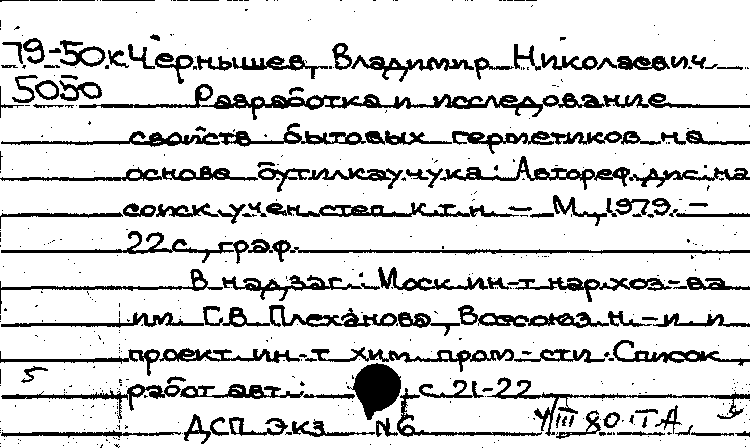 79-50к Чернышев, Владимир Николаевич
5050 Разработка и исследование
свойств бытовых герметиков на
основе бутилкаучука: Автореф. дис. на
соиск. учен. степ. к.т.н. — М., 1979. —
22 с., граф.
В надзаг.: Моск. ин-т нар. хоз-ва
им. Г.В. Плеханова, Всесоюз. н.-и. и
проект. ин-т хим. пром-сти. Список
5 работ авт.: с. 21-22
ДСП Экз N6 III 80 Т.А.